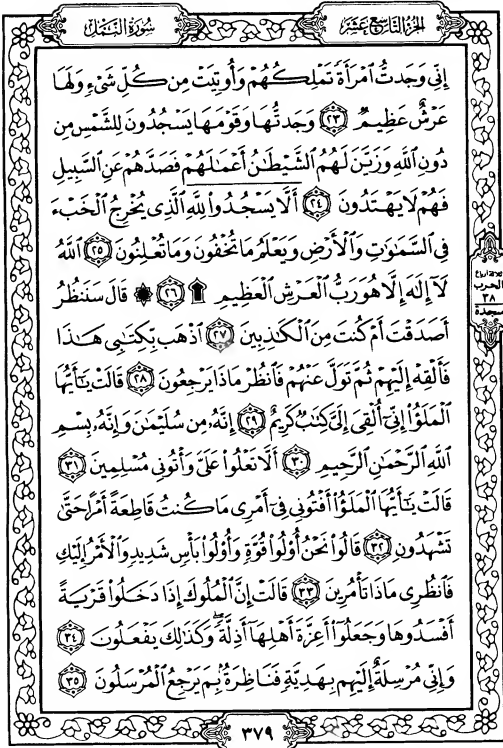 الجزء التاسع عشر
سورة النمل
إِنِّي وَجَدتُّ ٱمْرَأَةً تَمْلِكُهُمْ وَأُوتِيَتْ مِن كُلِّ شَيْءٍ وَلَهَا
عَرْشٌ عَظِيمٌ ٢٣ وَجَدتُّهَا وَقَوْمَهَا يَسْجُدُونَ لِلشَّمْسِ مِن
دُونِ ٱللَّهِ وَزَيَّنَ لَهُمُ ٱلشَّيْطَٰنُ أَعْمَٰلَهُمْ فَصَدَّهُمْ عَنِ ٱلسَّبِيلِ
فَهُمْ لَا يَهْتَدُونَ ٢٤ أَلَّا يَسْجُدُوا۟ لِلَّهِ ٱلَّذِي يُخْرِجُ ٱلْخَبْءَ
فِي ٱلسَّمَٰوَٰتِ وَٱلْأَرْضِ وَيَعْلَمُ مَا تُخْفُونَ وَمَا تُعْلِنُونَ ٢٥ ٱللَّهُ
لَآ إِلَٰهَ إِلَّا هُوَ رَبُّ ٱلْعَرْشِ ٱلْعَظِيمِ ۩ ٢٦ ۞ قَالَ سَنَنظُرُ
أَصَدَقْتَ أَمْ كُنتَ مِنَ ٱلْكَٰذِبِينَ ٢٧ ٱذْهَب بِّكِتَٰبِي هَٰذَا
فَأَلْقِهْ إِلَيْهِمْ ثُمَّ تَوَلَّ عَنْهُمْ فَٱنظُرْ مَاذَا يَرْجِعُونَ ٢٨ قَالَتْ يَٰٓأَيُّهَا
ٱلْمَلَؤُا۟ إِنِّيٓ أُلْقِيَ إِلَيَّ كِتَٰبٌ كَرِيمٌ ٢٩ إِنَّهُۥ مِن سُلَيْمَٰنَ وَإِنَّهُۥ بِسْمِ
ٱللَّهِ ٱلرَّحْمَٰنِ ٱلرَّحِيمِ ٣٠ أَلَّا تَعْلُوا۟ عَلَيَّ وَأْتُونِي مُسْلِمِينَ ٣١
قَالَتْ يَٰٓأَيُّهَا ٱلْمَلَؤُا۟ أَفْتُونِي فِيٓ أَمْرِي مَا كُنتُ قَاطِعَةً أَمْرًا حَتَّىٰ
تَشْهَدُونِ ٣٢ قَالُوا۟ نَحْنُ أُو۟لُوا۟ قُوَّةٍ وَأُو۟لُوا۟ بَأْسٍ شَدِيدٍ وَٱلْأَمْرُ إِلَيْكِ
فَٱنظُرِي مَاذَا تَأْمُرِينَ ٣٣ قَالَتْ إِنَّ ٱلْمُلُوكَ إِذَا دَخَلُوا۟ قَرْيَةً
أَفْسَدُوهَا وَجَعَلُوٓا۟ أَعِزَّةَ أَهْلِهَآ أَذِلَّةً ۖ وَكَذَٰلِكَ يَفْعَلُونَ ٣٤
وَإِنِّي مُرْسِلَةٌ إِلَيْهِم بِهَدِيَّةٍ فَنَاظِرَةٌۢ بِمَ يَرْجِعُ ٱلْمُرْسَلُونَ ٣٥
ثلاثة أرباع
الحزب
٣٨
سجدة
٣٧٩